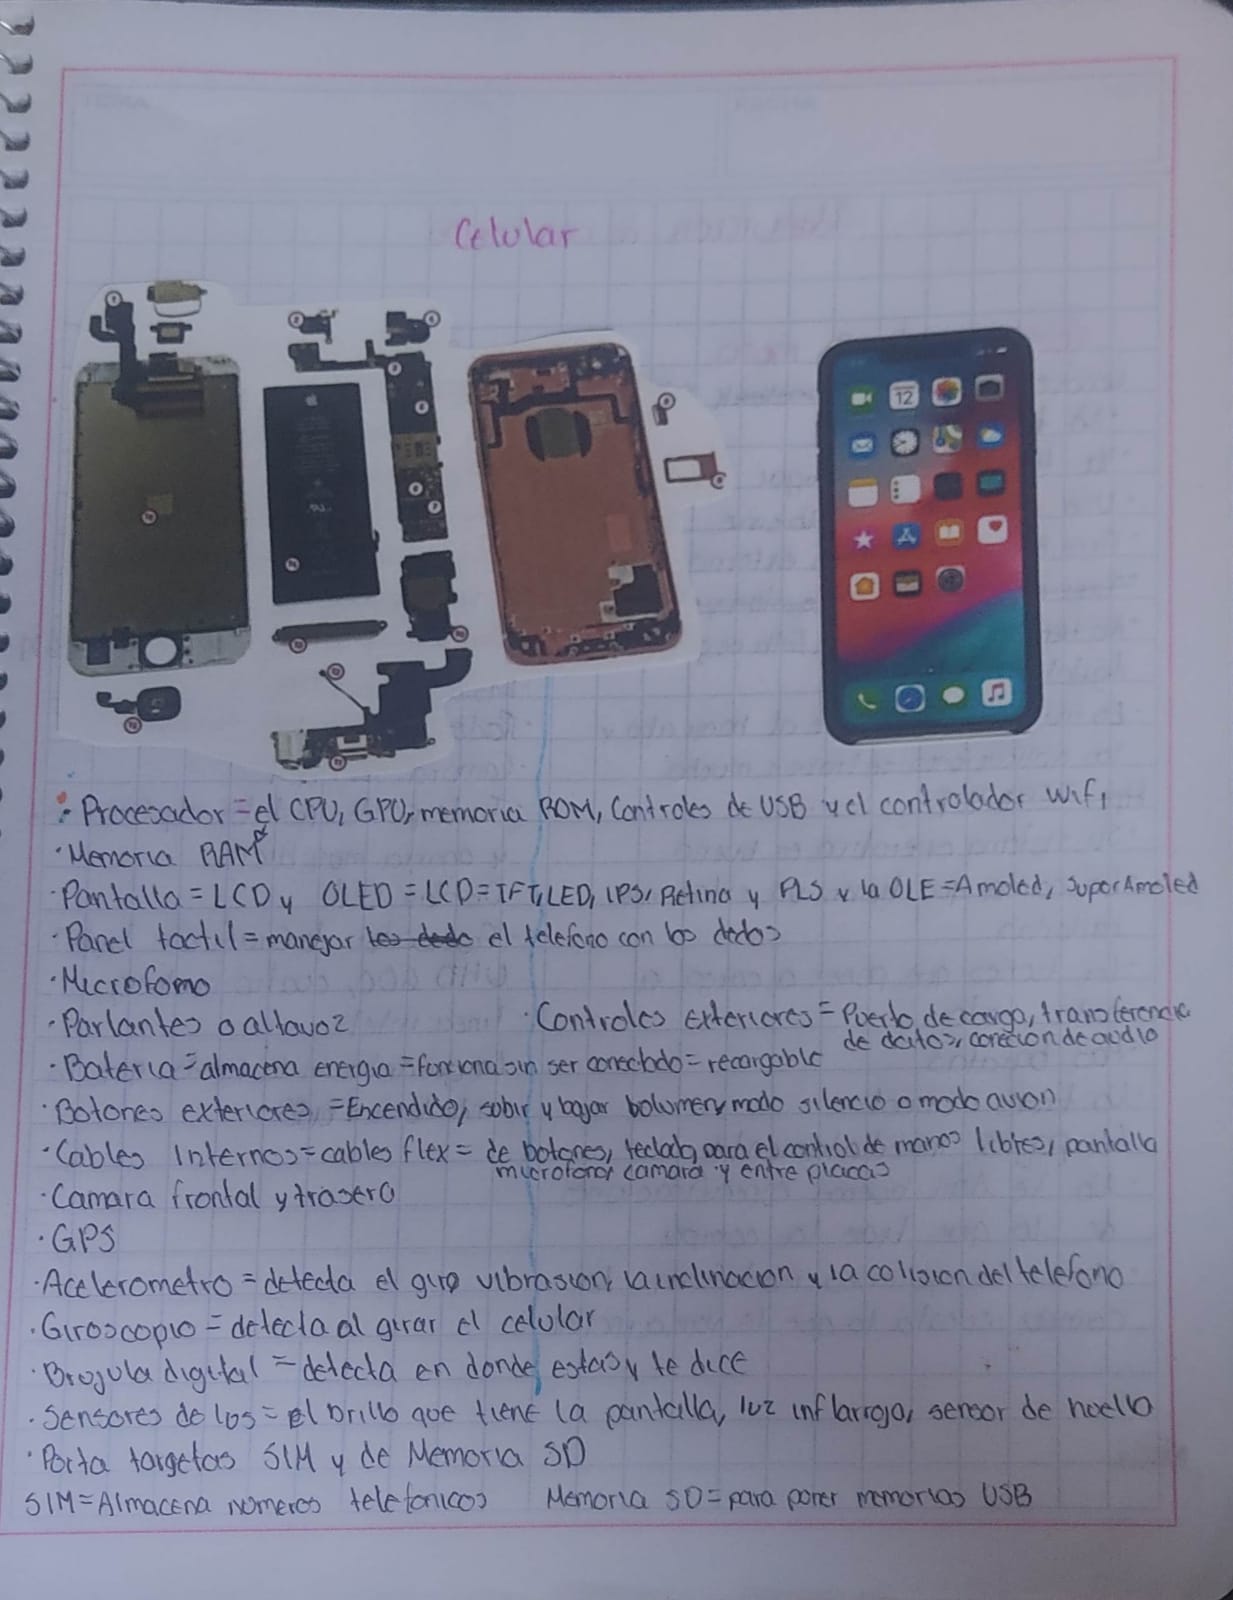 Celular
12
Procesador = el CPU, GPU, memoria ROM, Controles de USB y el controlador wifi
· Memoria RAM
· Pantalla = LCD y OLED = LCD = TFT, LED, IPS, Retina y PLS y la OLE = Amoled, SuperAmoled
· Panel tactil = manejar los dedo el telefono con los dedos
· Microfomo
· Parlantes o altavoz · Controles exteriores = Puerto de carga, transferencia
de datos, conecion de audio
· Bateria = almacena energia = funciona sin ser conectado = recargable
· Botones exteriores = Encendido, subir y bajar bolumen, modo silencio o modo avion
· Cables Internos = cables flex = de botones, teclado, para el control de manos libres, pantalla
microfono, camara y entre placas
· Camara frontal y trasero
· GPS
· Acelerometro = detecta el giro, vibrasion, la inclinacion y la colision del telefono
· Giroscopio = detecta al girar el celular
· Brojula digital = detecta en donde estas y te dice
· Sensores de los = el brillo que tiene la pantalla, luz inflarroja, sensor de huella
· Porta targetas SIM y de Memoria SD
SIM = Almacena numeros telefonicos Memoria SD = para poner memorias USB